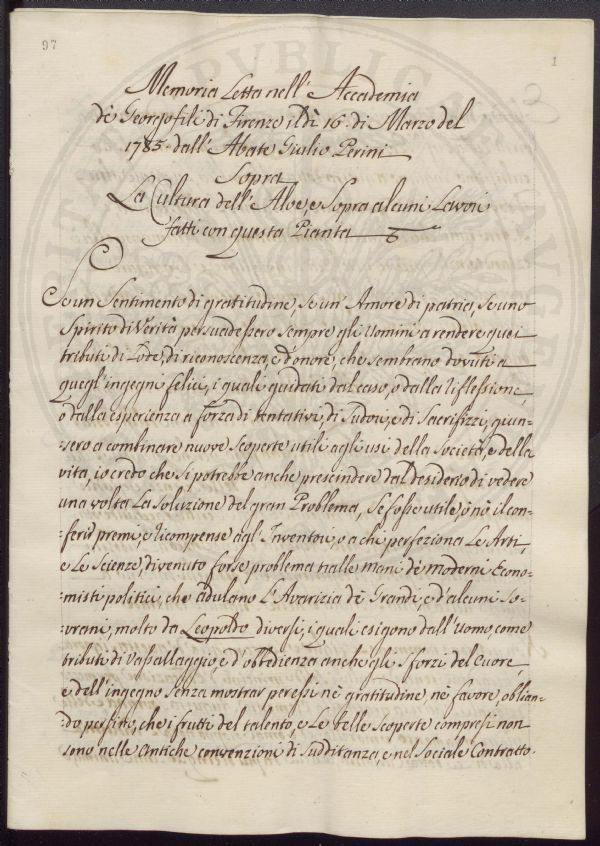 97
1
Memoria Letta nell' Accademia
dè Georgofili di Firenze il dì 16. di Marzo del
1785. dall' Abate Giulio Perini
Sopra
La Cultura dell' Aloe, e Sopra alcuni Lavori
fatti con questa Pianta
Se un Sentimento di gratitudine, se un' Amore di patria, se uno
Spirito di Verità persuadessero sempre gli Uomini a rendere quei
tributi di Lode, di riconoscenza, e d'onore, che sembrano dovuti a
quegl' ingegni felici, i quali guidati dal caso, o dalla riflessione,
o dalla esperienza a forza di tentativi, di Sudori, e di Sacrifizzi, giun-
:sero a combinare nuove Scoperte utili agli usi della Società, e della
vita, io credo che si potrebbe anche prescindere dal desiderio di vedere
una volta la soluzione del gran Problema, Se fosse utile, ò nò il con-
:ferir premi, e ricompense agl' Inventori, o a chi perfeziona Le Arti,
e Le Scienze, divenuto forse problema tralle mani dè moderni Econo-
:misti politici, che adulano L'Avarizia dè Grandi, e d'alcuni So-
:vrani, molto da Leopoldo diversi, i quali esigono dall' Uomo, come
tributi di Vassallaggio, e d'obbedienza anche gli sforzi del Cuore
e dell' ingegno senza mostrar per essi nè gratitudine, nè favore, oblian-
:do perfino, che i frutti del talento, e Le belle scoperte compresi non
sono nelle antiche convenzioni di Sudditanza, e nel Sociale Contratto.